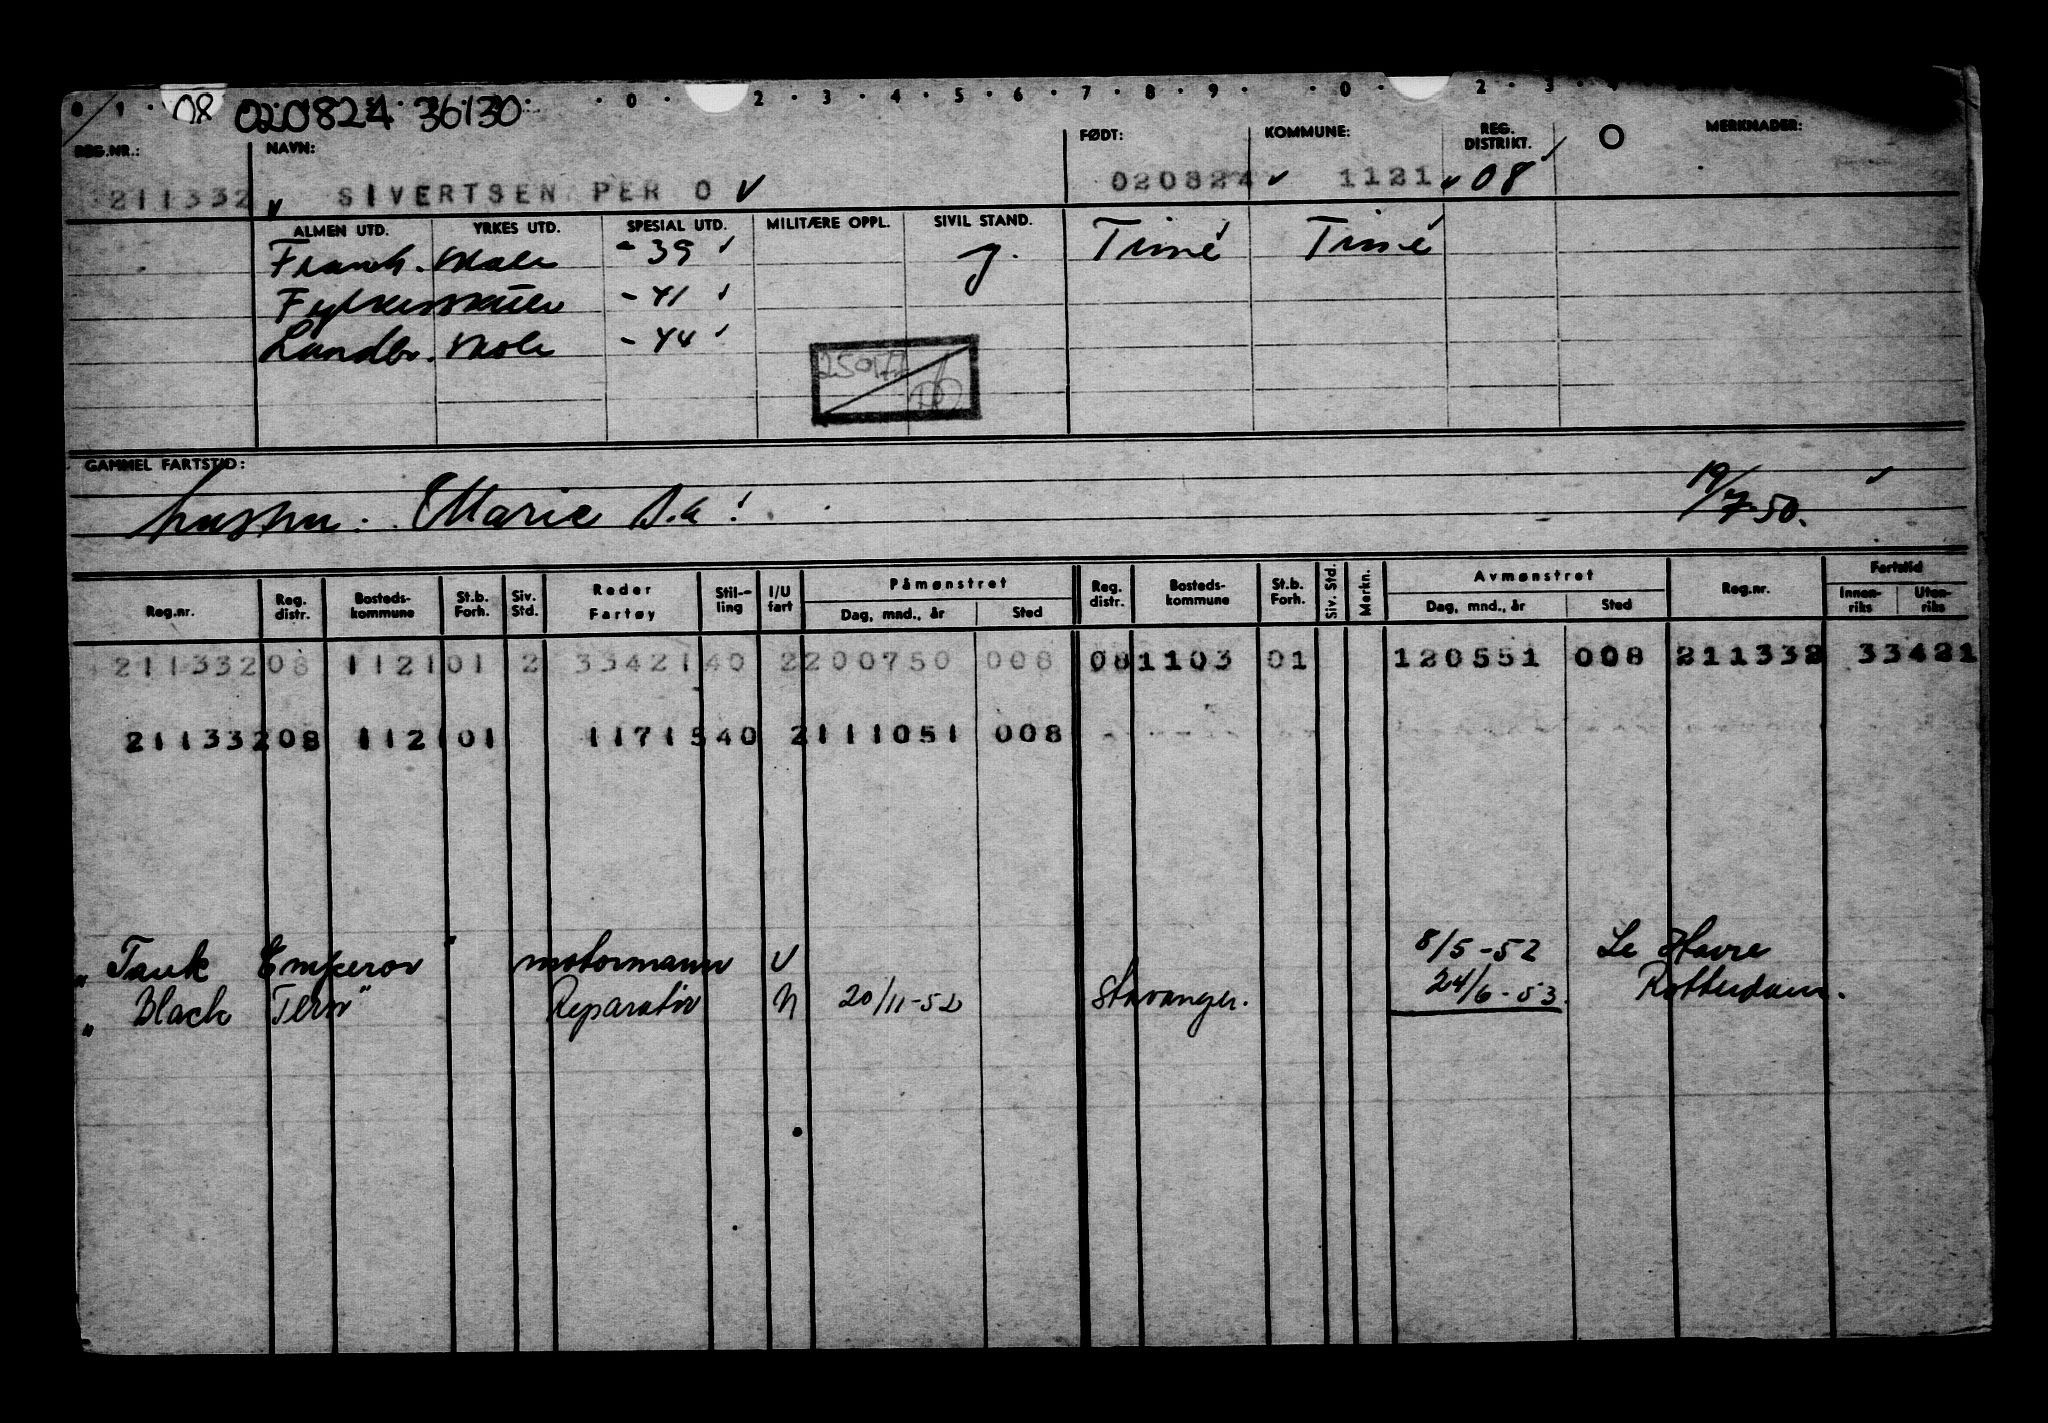 0 1 08 020824 36130 0 2 3 4 5 6 7 8 9 0 2 3 4
REG.NR.: NAVN: FØDT: KOMMUNE: REG. DISTRIKT. O MERKNADER:
211332 SIVERTSEN PER O 020824 1121 08
ALMEN UTD. YRKES UTD. SPESIAL UTD. MILITÆRE OPPL. SIVIL STAND.
Framh. skole - 39 g. Time Time
Fylkesskule - 41
Landbr. skole - 44
GAMMEL FARTSTID:
hustru: Marie s.a. 19/7-50.
Reg.nr. Reg. distr. Bosteds-kommune St.b. Forh. Siv. Std. Reder Fartøy Stil-ling I/U fart Påmønstret Dag, mnd., år Sted Reg. distr. Bosteds-kommune St.b. Forh. Siv. Std. Merkn. Avmønstret Dag, mnd., år Sted Reg.nr. Fartstid Innen-riks Uten-riks
211332 08 1121 01 2 33421 40 2 200750 008 08 1103 01 120551 008 211332 33421
211332 08 1121 01 11715 40 2 111051 008
" Tank Emperor " motormann U 8/5-52 Le Havre
" Black Tern " Reparatør U 20/11-52 Stavanger. 24/6-53. Rotterdam.